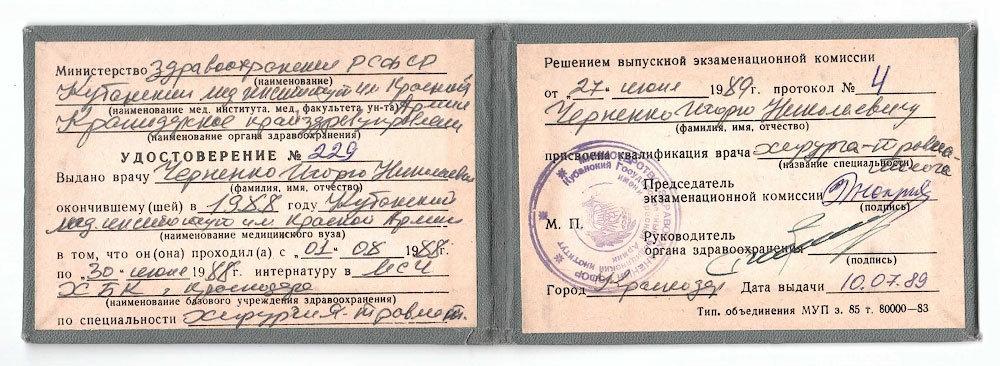 Министерство здравоохранения РСФСР
(наименование)
Кубанский мединститут им Красной Армии
(наименование мед. института. мед. факультета ун-та)
Краснодарское крайздравуправление
(наименование органа здравоохранения)
УДОСТОВЕРЕНИЕ № 229
Выдано врачу Черненко Игорю Николаевичу
(фамилия, имя, отчество)
окончившему (шей) в 1988 году Кубанский
мединститут им Красной Армии
(наименование медицинского вуза)
в том, что он(она) проходил(а) с "01" 08 1988г.
по "30" июне 1989г. интернатуру в МСЧ
ХБК г. Краснодара
(наименование базового учреждения здравоохранения)
по специальности хирургия-травмат.
Решением выпускной экзаменационной комиссии
от "27" июне 1989г. протокол № 4
Черненко Игорю Николаевичу
(фамилия, имя, отчество)
присвоена квалификация врача хирурга-травма-
толога
(название специальности)
Председатель
экзаменационной комиссии
(подпись)
М. П.
Руководитель
органа здравоохранения
(подпись)
Город Краснодар Дата выдачи 10.07.89
Тип. объединения МУП з. 85 т. 80000—83